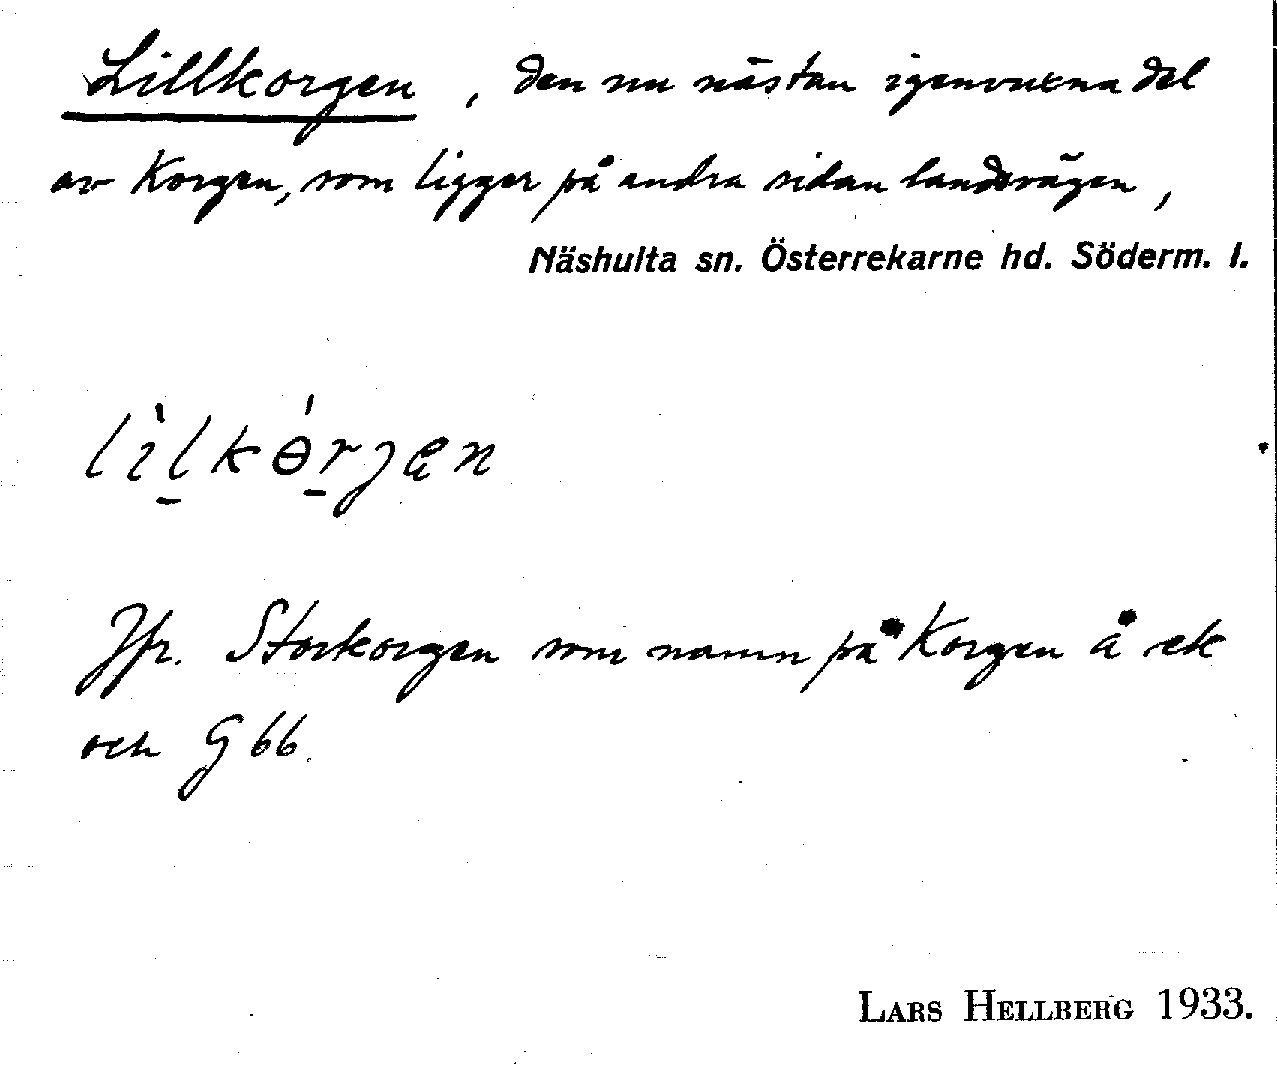 Lillkorgen, den nu nästan igenvuxna del
av Korgen, som ligger på andra sidan landsvägen,
Näshulta sn. Österrekarne hd. Söderm. l.
lìlkɵ́rjen
Jfr. Storkorgen som namn på Korgen å ek
och G 66.
LARS HELLBERG 1933.